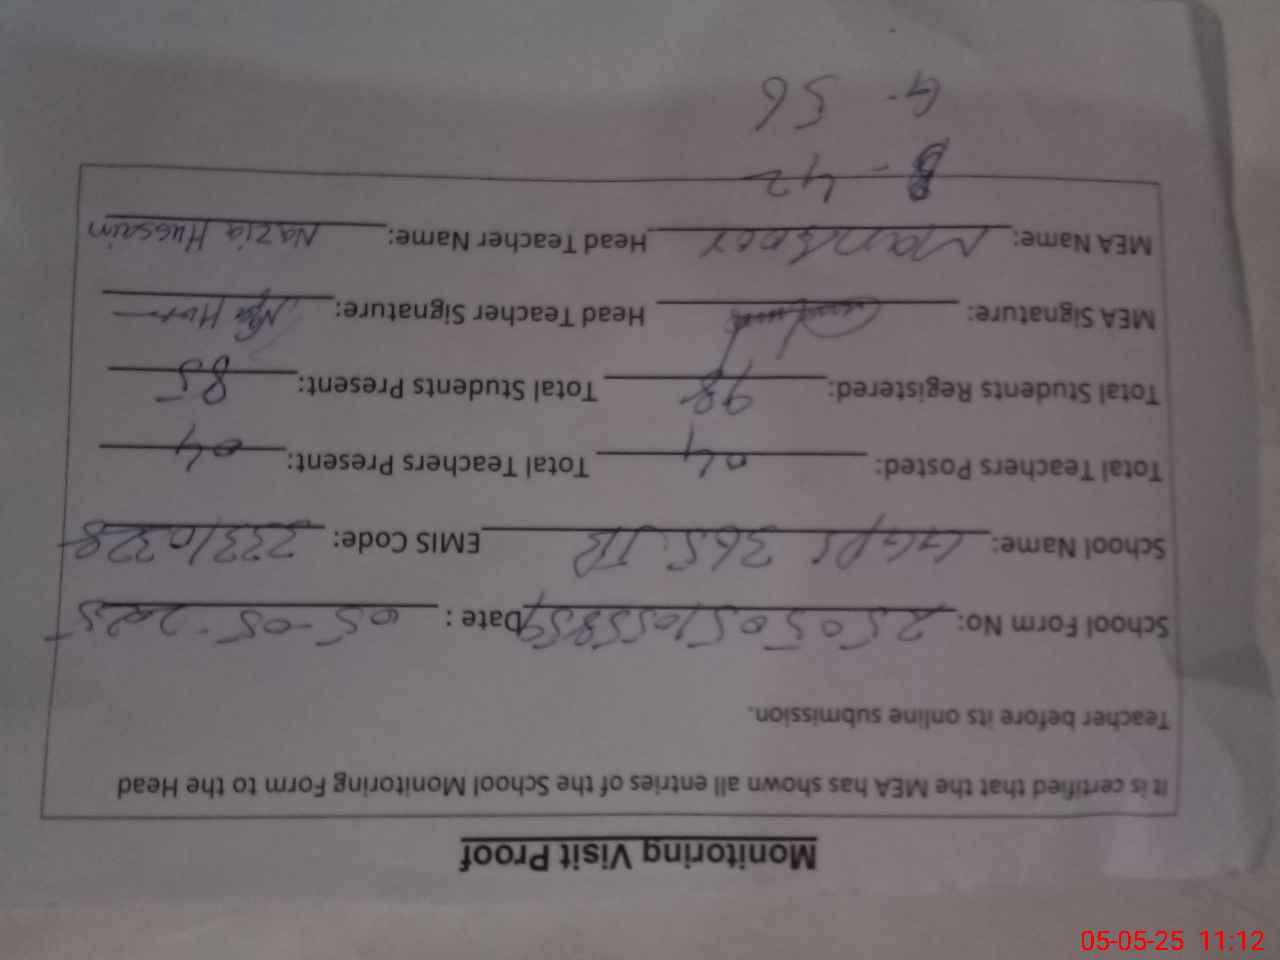 Monitoring Visit Proof
It is certified that the MEA has shown all entries of the School Monitoring Form to the Head
Teacher before its online submission.
School Form No: 2505051055859 Date : 05-05-2025
School Name: GGPS 365 JB EMIS Code: 33310328
Total Teachers Posted: 04 Total Teachers Present: 04
Total Students Registered: 98 Total Students Present: 85
MEA Signature: Head Teacher Signature:
MEA Name: Mansoor Head Teacher Name: Nazia Hussain
B - 42
G - 56
05-05-25 11:12